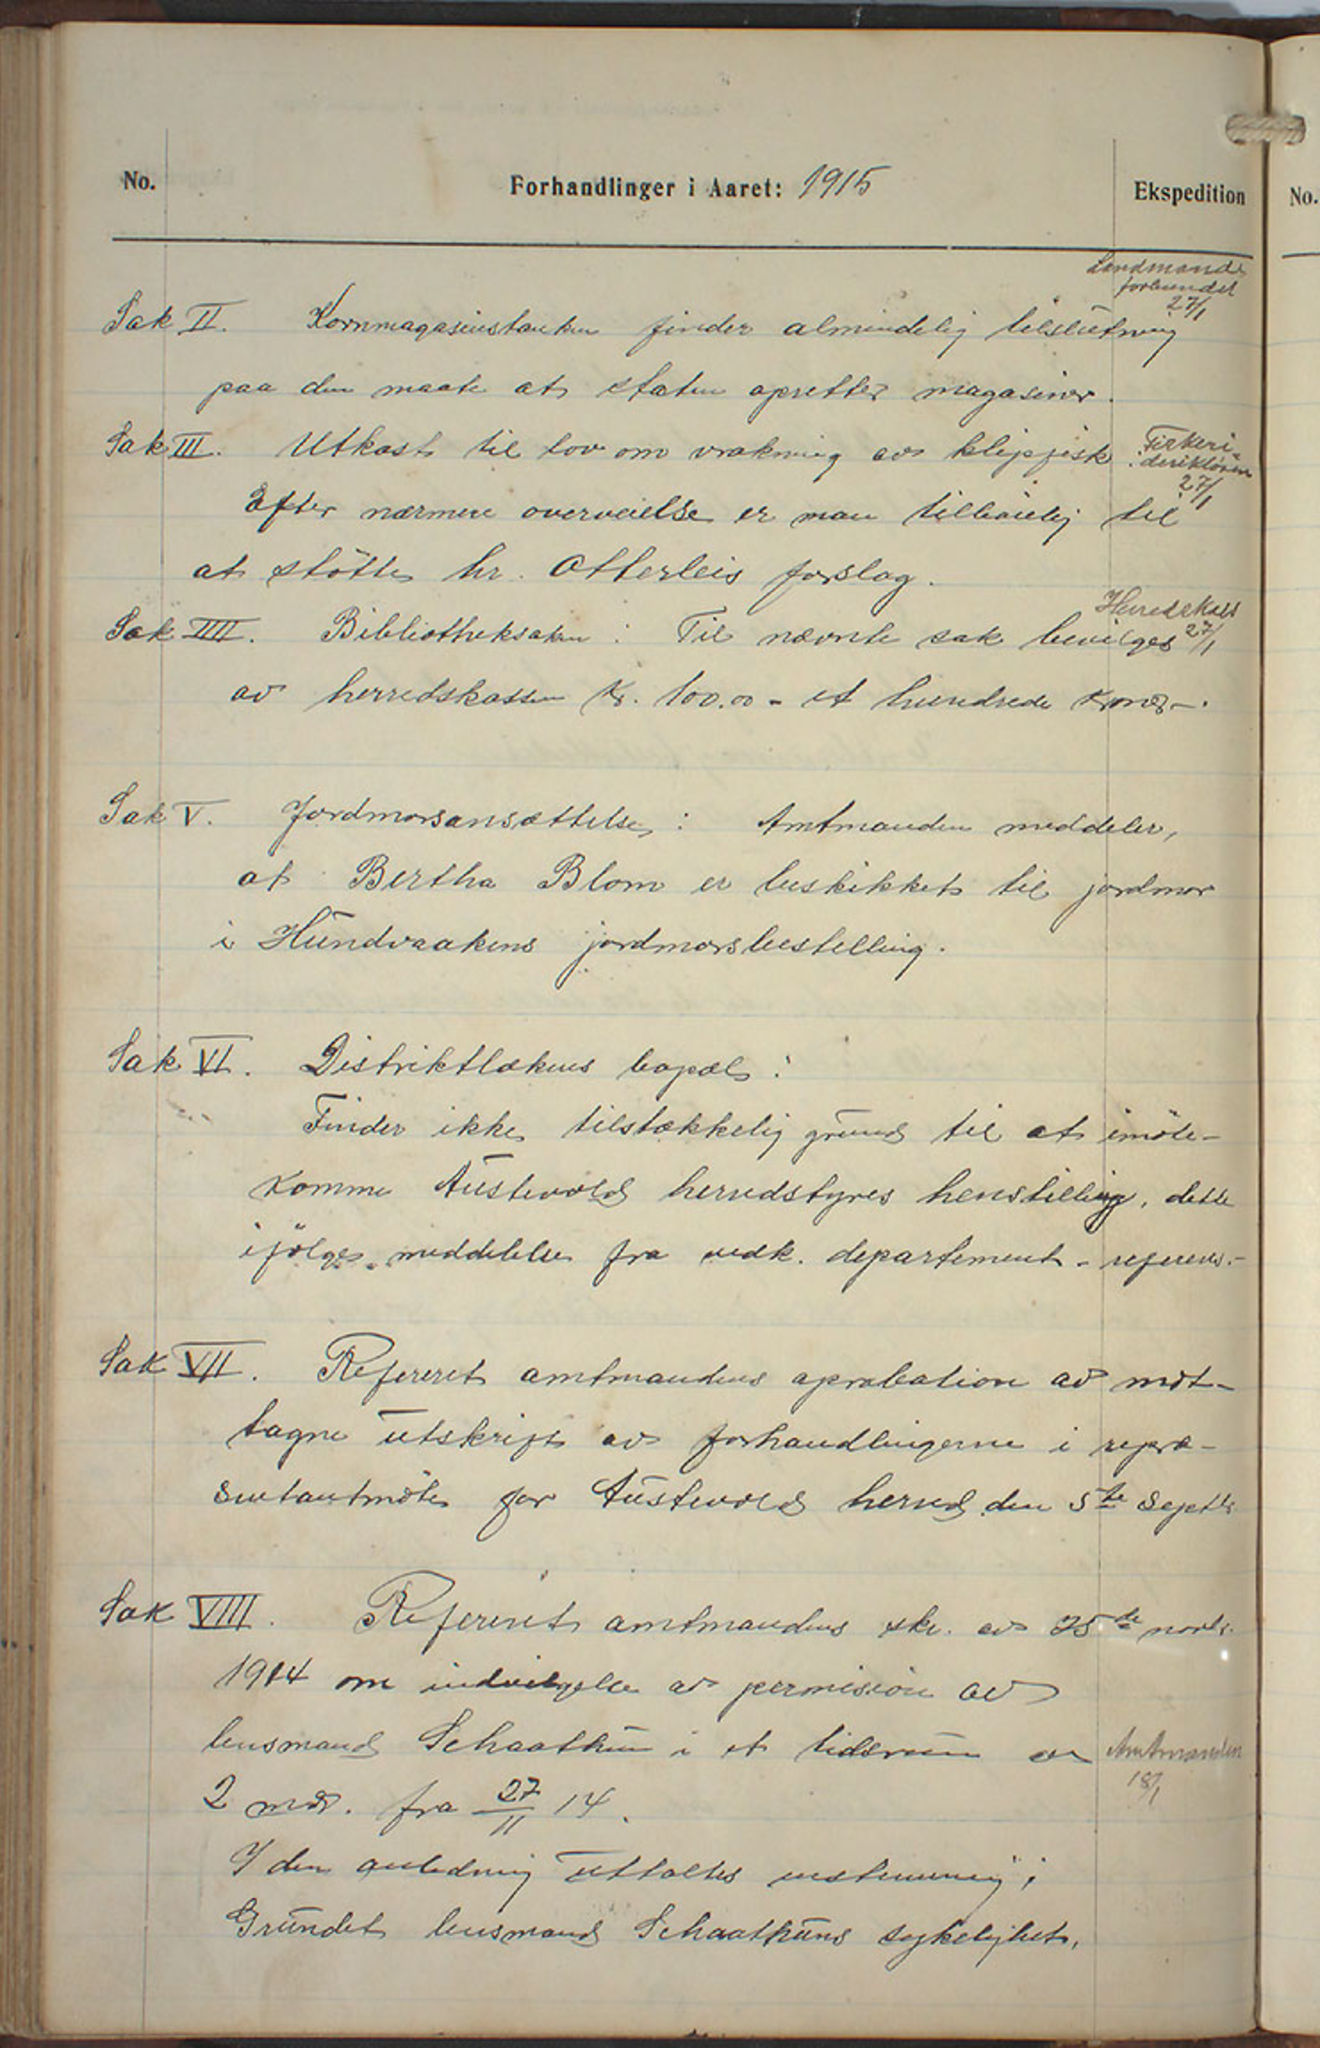 No. Forhandlinger i Aaret: 1915 Ekspedition No.
Landmands
forbundet
27/1
Sak II. Kornmagasinstanken finder almindelig tilslutning
paa den maate at staten opretter magasiner.
Sak III. Utkast til lov om vrakning av klipfisk
Fiskeri-
direktøren
27/1
Efter nærmere overveielse er man tilbøielig til
at støtte hr. Otterleis forslag.
Herredskass
27/1
Sak IIII. Bibliotheksaken: Til nævnte sak bevilges
av herredskassen Kr. 100.00 - et hundrede kroner -.
Sak V. Jordmorsansættelse: Amtmanden meddeler,
at Bertha Blom er beskikket til jordmor
i Hundvaakens jordmorsbestelling.
Sak VI. Distriktlækens bopæl:
Finder ikke tilstækkelig grund til at imøte-
komme Austevold herredstyres henstilling, dette
ifølge meddelelse fra vedk. departement - referers. -
Sak VII. Refereret amtmandens aprobation av mot-
tagne utskrift av forhandlingerne i repræ-
sentantmøte for Austevold herred den 5te Septb
Sak VIII. Refereret amtmandens skr. av 25de novb.
1914 om indvilgelse av permision av
lensmand Schaathun i et tidsrum av
Amtmanden
18/1
2 mdr. fra 27/11 14.
I den anledning uttaltes enstemmig;
Grundet lensmand Schaathuns sykelighet,